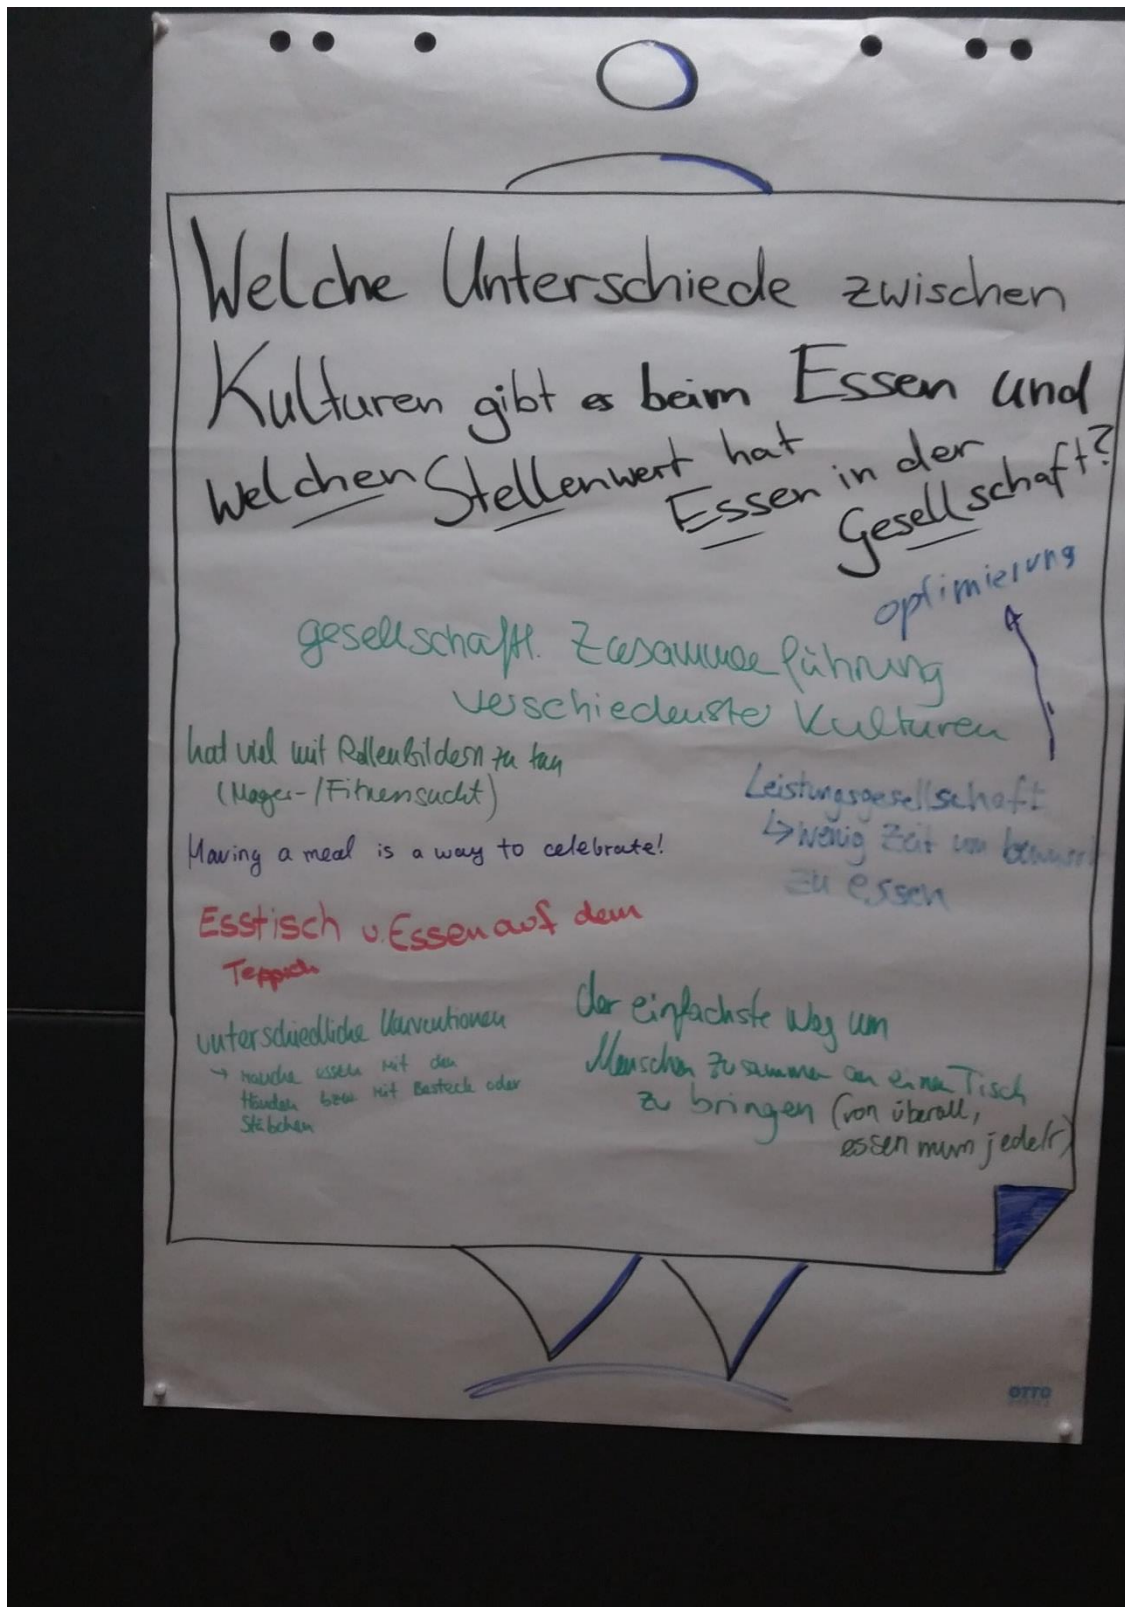 Welche Unterschiede zwischen
Kulturen gibt es beim Essen und
welchen Stellenwert hat
Essen in der
Gesellschaft?
optimierung
gesellschaftl. Zusammenführung
verschiedenster Kulturen
hat viel mit Rollenbildern zu tun
(Mager-/Fitnesssucht)
Leistungsgesellschaft
↳ wenig Zeit um bewusst
zu essen
Having a meal is a way to celebrate!
Esstisch u. Essen auf dem
Teppich
unterschiedliche Konventionen
→ manche essen mit den
Händen bzw. mit Besteck oder
Stäbchen
der einfachste Weg um
Menschen zusammen an einen Tisch
zu bringen (von überall,
essen muss jede/r)
OTTO